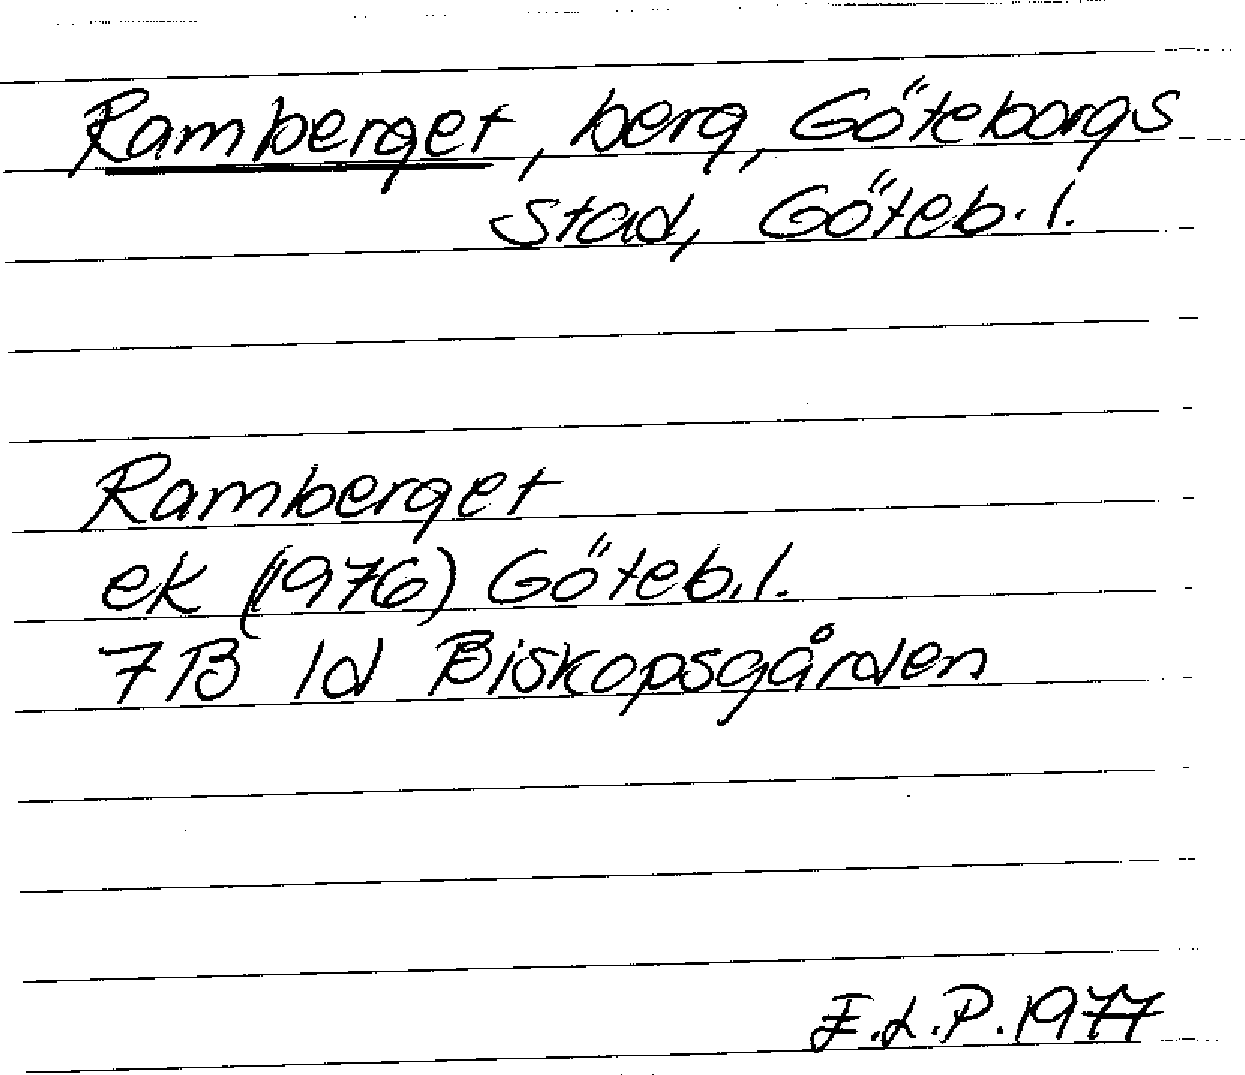 Ramberget, berg, Göteborgs
stad, Göteb. l.
Ramberget
ek (1976) Göteb. l.
7B 1d Biskopsgården
E.L.P. 1977